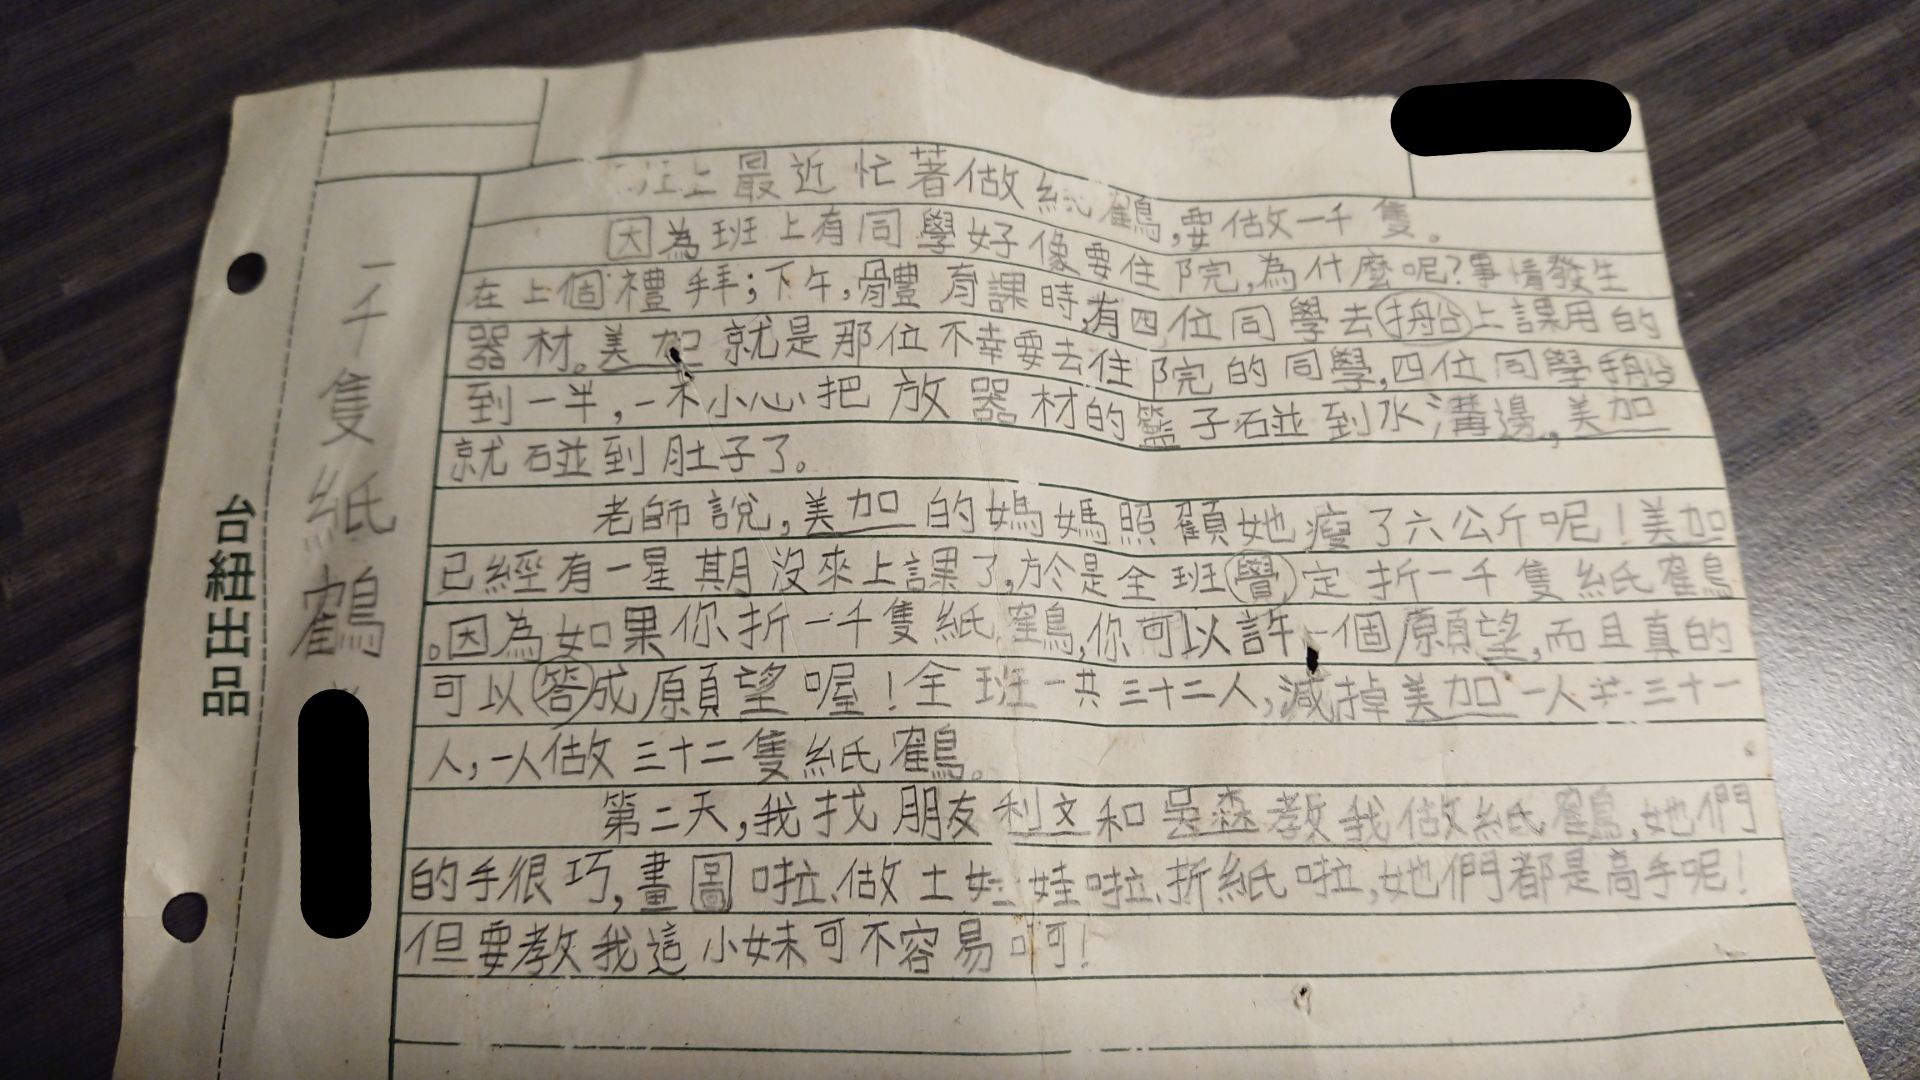 台紐出品
一千隻紙鶴
班上最近忙著做紙鶴,要做一千隻。
因為班上有同學好像要住院,為什麼呢?事情發生
在上個禮拜;下午,體育課時,有四位同學去拇上課用的
器材。美加就是那位不幸要去住院的同學,四位同學
到一半,一不小心把放器材的籃子碰到水溝邊,美加
就碰到肚子了。
老師說,美加的媽媽照顧她瘦了六公斤呢!美加
已經有一星期沒來上課了,於是全班定折一千隻紙鶴
。因為如果你折一千隻紙鶴,你可以許一個願望,而且真的
可以答成願望喔!全班一共三十二人,減掉美加一人共三十一
人,一人做三十二隻紙鶴。
第二天,我找朋友利文和吳森教我做紙鶴,她們
的手很巧,畫圖啦、做土娃娃啦、折紙啦,她們都是高手呢!
但要教我這小妹可不容易啊!